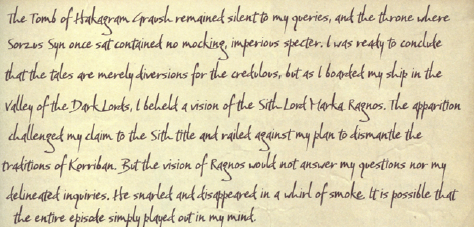 The Tomb of Hakagram Graush remained silent to my queries, and the throne where
Sorzus Syn once sat contained no mocking, imperious specter. I was ready to conclude
that the tales are merely diversions for the credulous, but as I boarded my ship in the
Valley of the Dark Lords, I beheld a vision of the Sith Lord Marka Ragnos. The apparition
challenged my claim to the Sith title and railed against my plan to dismantle the
traditions of Korriban. But the vision of Ragnos would not answer my questions nor my
delineated inquiries. He snarled and disappeared in a whirl of smoke. It is possible that
the entire episode simply played out in my mind.